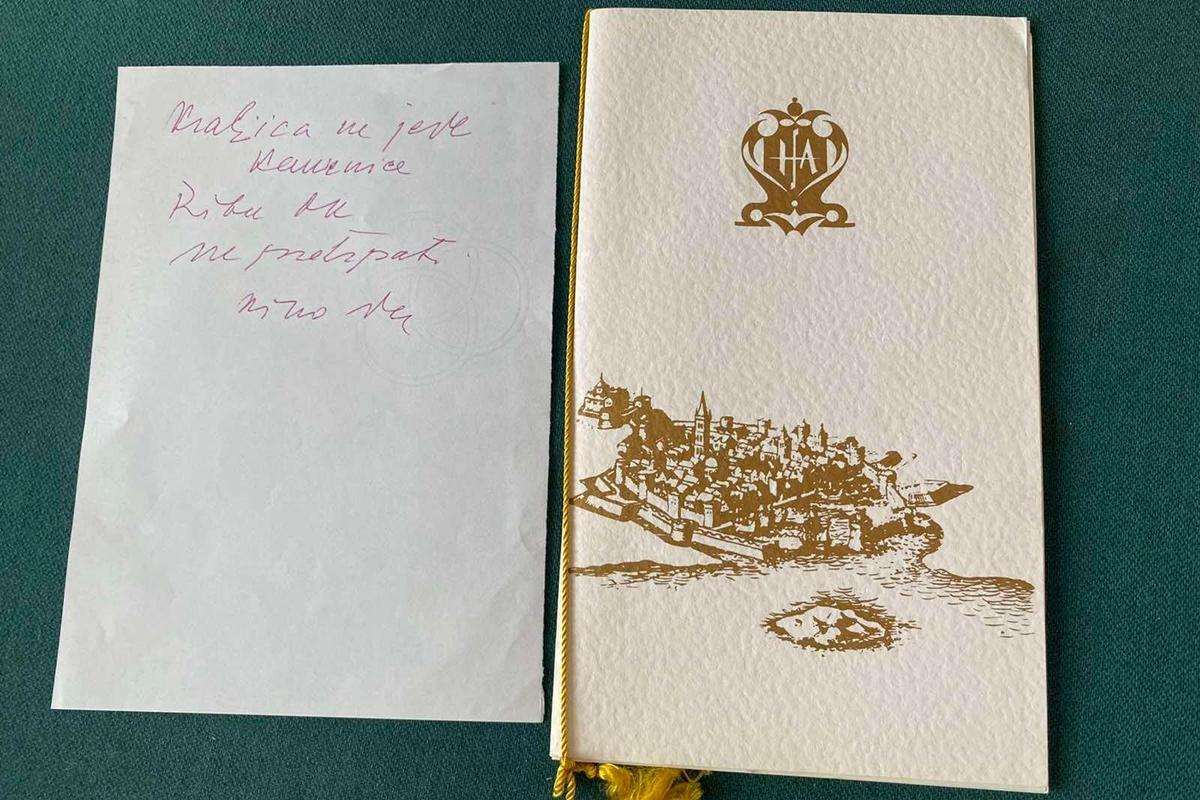 Kraljica ne jede
Kamenice
Riba OK
ne pretrpati
HA